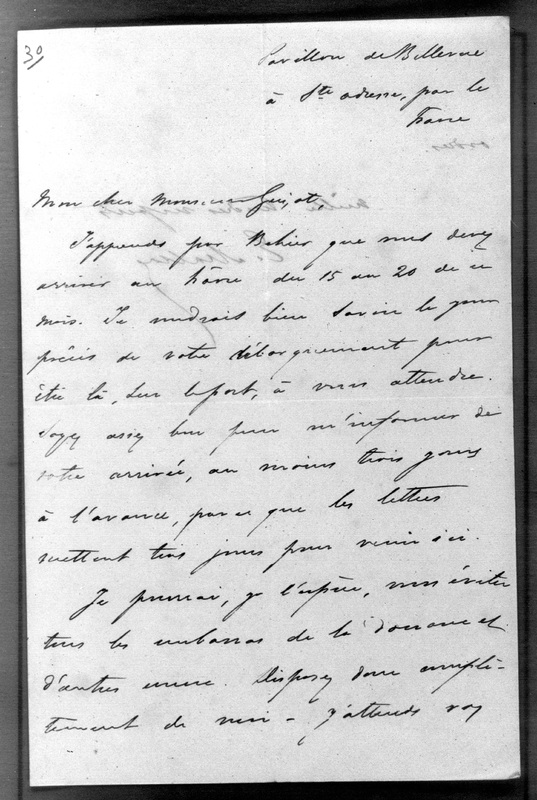 30
Pavillon de Bellevue
à Ste adresse, par le
havre
Mon cher Monsieur Guizot,
J'apprends par Béhier que vous devez
arriver au hâvre du 15 au 20 de ce
mois. Je voudrais bien savoir le jour
précis de votre débarquement pour
être là, sur le port, à vous attendre.
Soyez assez bon pour m'informer de
votre arrivée, au moins trois jours
à l'avance, parce que les lettres
mettent trois jours pour venir ici.
Je pourrai, je l'espère, vous éviter
tous les embarras de la douane et
d'autres encore. Disposez donc complè-
tement de moi - J'attends vos